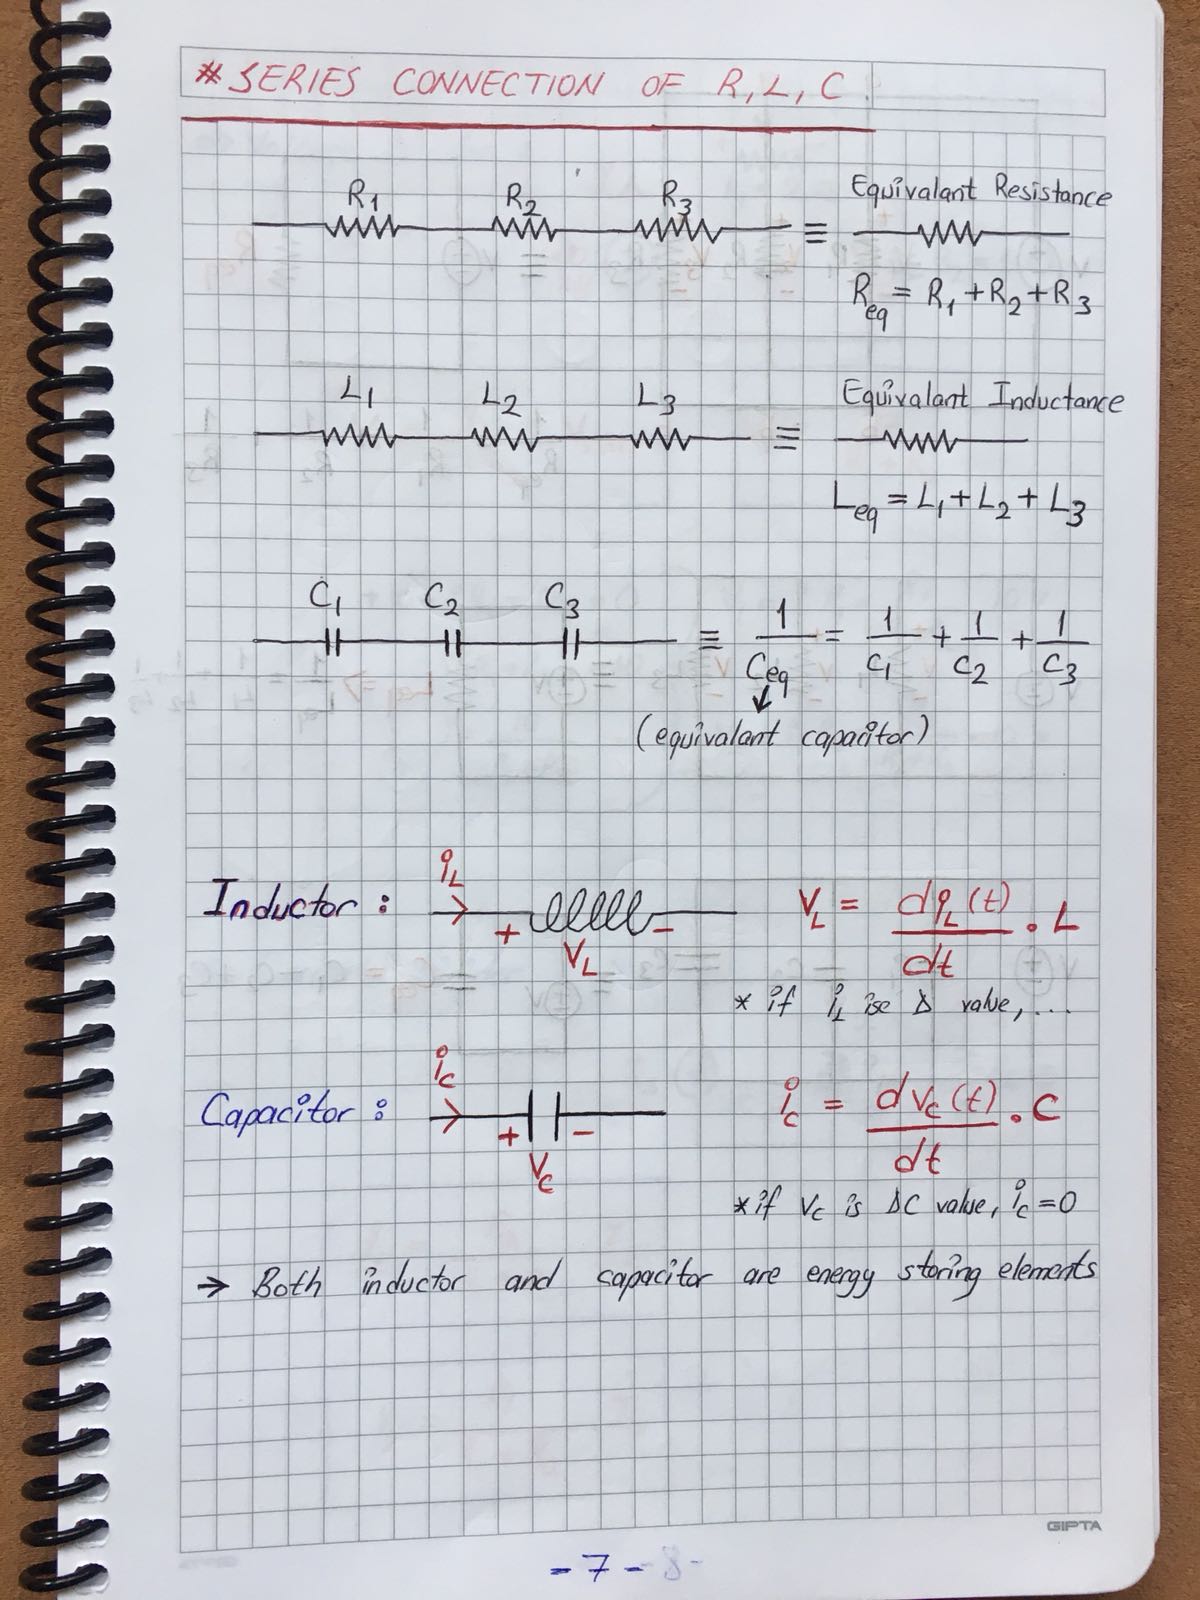 * SERIES CONNECTION OF R, L, C
R1 R2 R3 Equivalant Resistance
≡
Req = R1 + R2 + R3
L1 L2 L3 Equivalant Inductance
≡
Leq = L1 + L2 + L3
C1 C2 C3 ≡ 1/Ceq = 1/C1 + 1/C2 + 1/C3
(equivalant capacitor)
Inductor : iL + VL - VL = diL(t)/dt . L
* if iL ise Δ value, ...
Capacitor : ic + Vc - ic = dvc(t)/dt . C
* if Vc is DC value, ic = 0
→ Both inductor and capacitor are energy storing elements
GIPTA
- 7 -